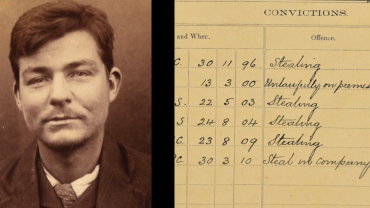 CONVICTIONS.
and Wher. Offence.
C. 30 11 96 Stealing
13 3 00 Unlawfully on prem
S. 22 5 03 Stealing
S 24 8 04 Stealing
C. 23 8 09 Stealing
C. 30 3 10 Steal in company